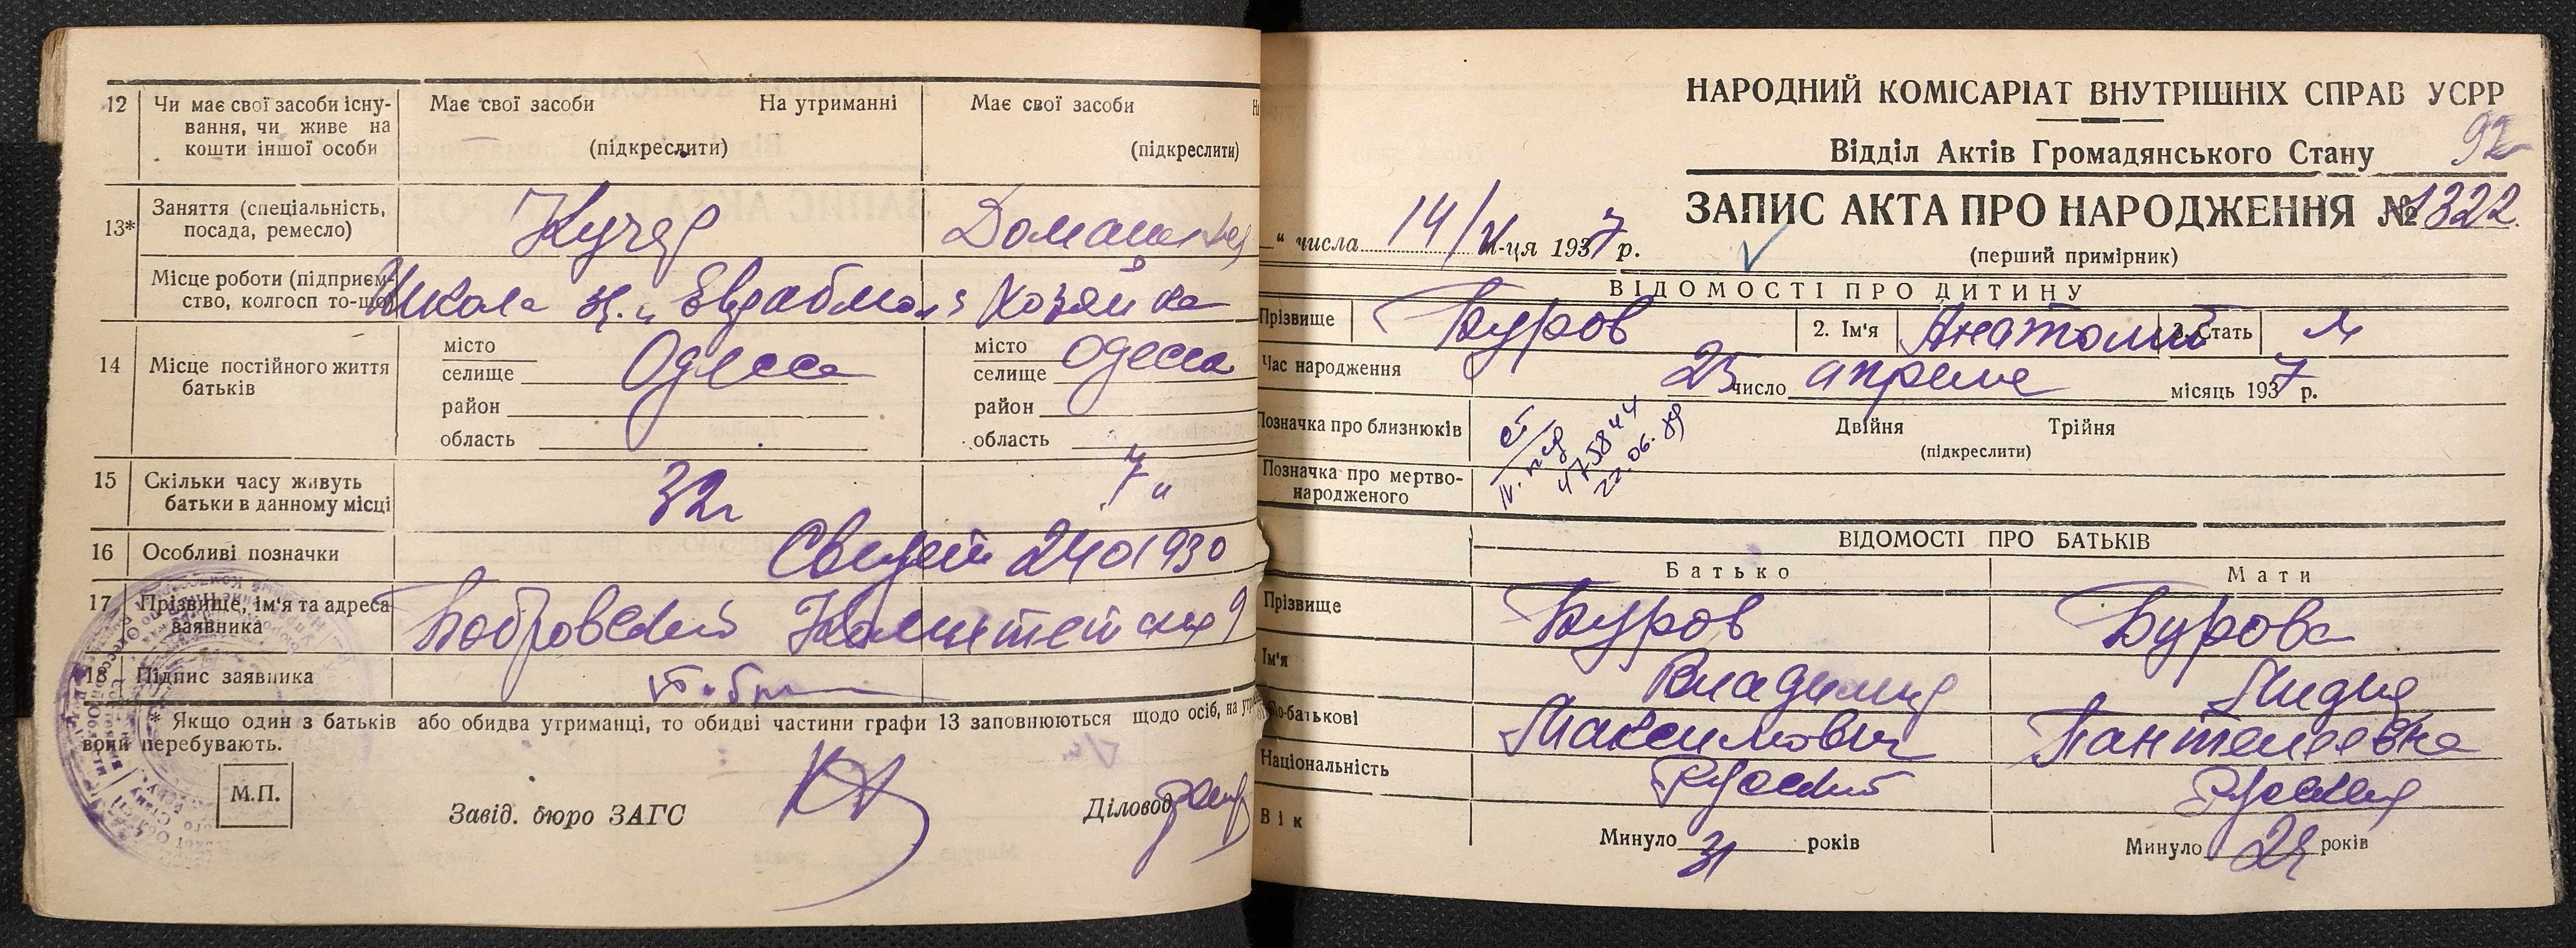 12 Чи має свої засоби існу-
вання, чи живе на
кошти іншої особи
Має свої засоби На утриманні
(підкреслити)
Має свої засоби
(підкреслити)
13* Заняття (спеціальність,
посада, ремесло)
Кучер
Домашняя
Місце роботи (підприєм-
ство, колгосп то-що)
Школа
Хозяйка
14 Місце постійного життя
батьків
місто
селище Одесса
район
область
місто
селище Одесса
район
область
15 Скільки часу живуть
батьки в данному місці
32 г
7 "
16 Особливі позначки
17 Прізвище, ім'я та адреса
заявника
Бобровский
9
18 Підпис заявника
* Якщо один з батьків або обидва утриманці, то обидві частини графи 13 заповнюються щодо осіб, на
вони перебувають.
М.П.
Завід. бюро ЗАГС
Діловод
НАРОДНИЙ КОМІСАРІАТ ВНУТРІШНІХ СПРАВ УСРР
92
Відділ Актів Громадянського Стану
ЗАПИС АКТА ПРО НАРОДЖЕННЯ № 1322
(перший примірник)
" числа 14/V м-ця 1937 р.
ВІДОМОСТІ ПРО ДИТИНУ
Прізвище Буров 2. Ім'я Анатолий 3. Стать м
Час народження 23 число апреля місяць 1937 р.
Позначка про близнюків
Двійня Трійня
(підкреслити)
475844
22.06.89
Позначка про мертво-
народженого
ВІДОМОСТІ ПРО БАТЬКІВ
Батько Мати
Прізвище Буров Бурова
Ім'я Владимир Лидия
По-батькові Максимович Пантелеевна
Національність Русский Русская
Вік Минуло 31 років Минуло 24 років